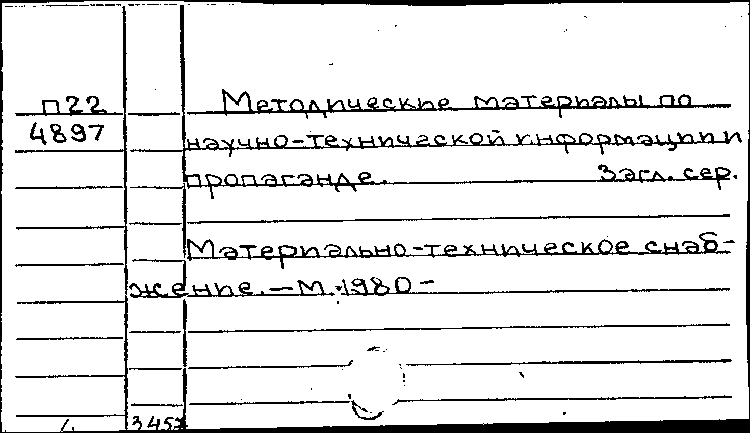 П22
4897
Методические материалы по
научно-технической информации и
пропаганде. Загл. сер.
Материально-техническое снаб-
жение. — М. 1980 -